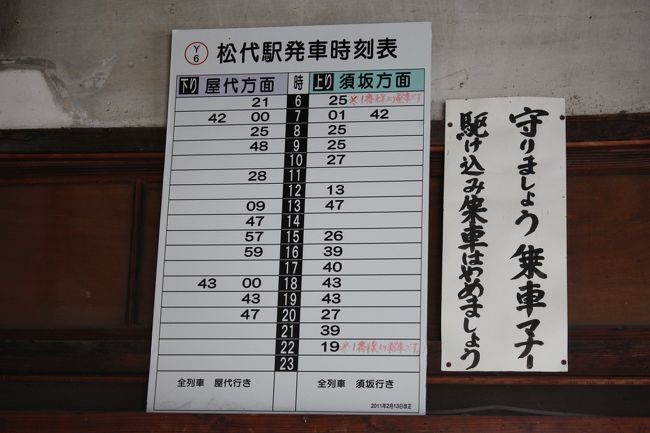 Y
6
松代駅発車時刻表
下り 屋代方面 時 上り 須坂方面
21 6 25 ※1番線より発車です
42 00 7 01 42
25 8 25
48 9 25
10 27
28 11
12 13
09 13 47
47 14
57 15 26
59 16 39
17 40
43 00 18 43
43 19 43
47 20 27
21 39
22 19 ※1番線より発車です
23
全列車 屋代行き 全列車 須坂行き
2011年2月13日改正
守りましょう 乗車マナー
駆け込み乗車はやめましょう